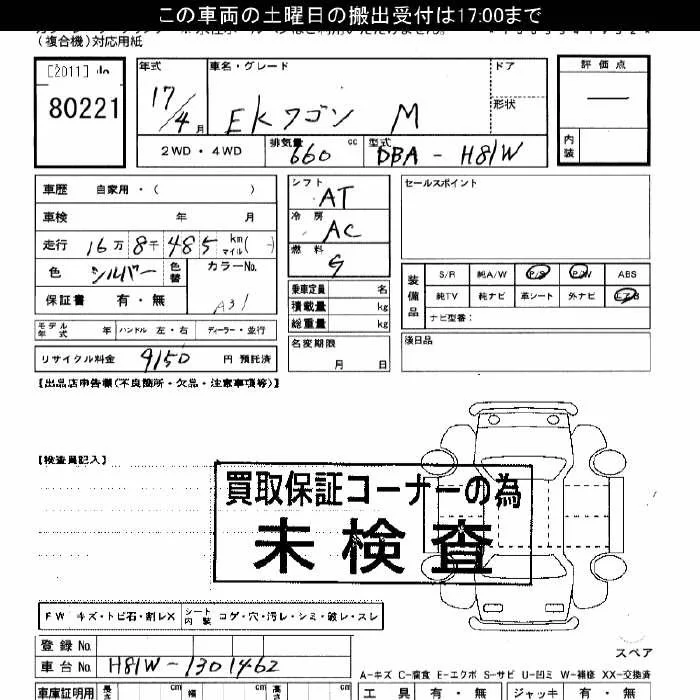 この車両の土曜日の搬出受付は17:00まで
(複合機)対応用紙
[2011]
80221
年式 車名・グレード ドア 評価点
17/4月 EKワゴン M 形状
2WD・4WD 排気量 660 cc 型式 DBA-H81W 内装
車歴 自家用・( ) シフト AT セールスポイント
車検 年 月 冷房 AC
走行 16万8千485 km マイル( ) 燃料 G
色 シルバー 色替 カラーNo. A31
保証書 有・無
乗車定員 名
積載量 kg
総重量 kg
装備品 S/R 純A/W P/S P/W ABS
純TV 純ナビ 革シート 外ナビ エアB
ナビ型番:
モデル年式 年 ハンドル 左・右 ディーラー・並行
名変期限 月 日
後日品
リサイクル料金 9150 円 預託済
【出品店申告欄(不良箇所・欠品・注意事項等)】
【検査員記入】
買取保証コーナーの為
未検査
FW キズ・トビ石・割レX シート内装 コゲ・穴・汚レ・シミ・破レ・スレ
登録No.
スペア
車台No. H81W-1301462
A-キズ C-腐食 E-エクボ S-サビ U-凹ミ W-補修 XX-交換済
車庫証明用 長さ cm 幅 cm 高さ cm 工具 有・無 ジャッキ 有・無